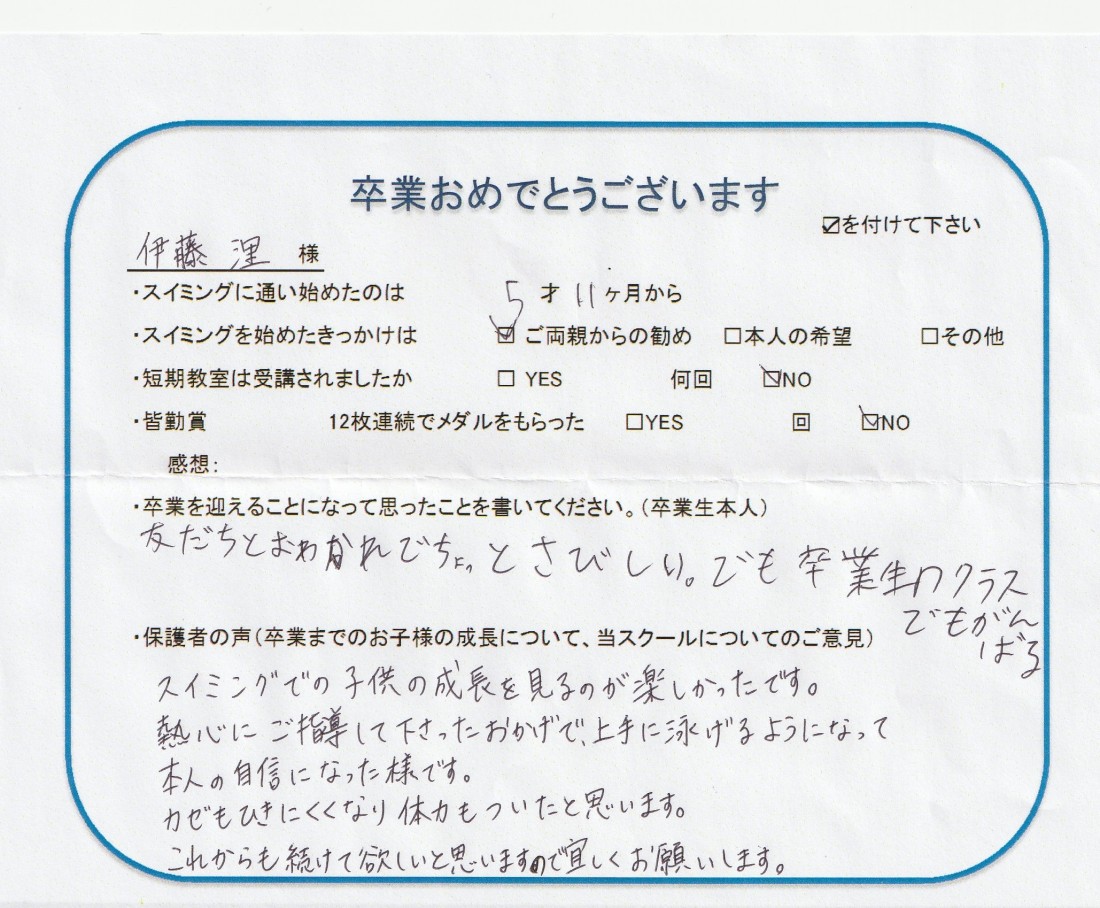 卒業おめでとうございます
☑を付けて下さい
伊藤 浬 様
・スイミングに通い始めたのは 5 才 11 ヶ月から
・スイミングを始めたきっかけは ☑ ご両親からの勧め □本人の希望 □その他
・短期教室は受講されましたか □ YES 何回 ☑NO
・皆勤賞 12枚連続でメダルをもらった □YES 回 ☑NO
感想:
・卒業を迎えることになって思ったことを書いてください。(卒業生本人)
友だちとおわかれでちょっとさびしい。でも卒業生のクラス
でもがん
ばる
・保護者の声(卒業までのお子様の成長について、当スクールについてのご意見)
スイミングでの子供の成長を見るのが楽しかったです。
熱心にご指導して下さったおかげで、上手に泳げるようになって
本人の自信になった様です。
カゼもひきにくくなり体力もついたと思います。
これからも続けて欲しいと思いますので宜しくお願いします。